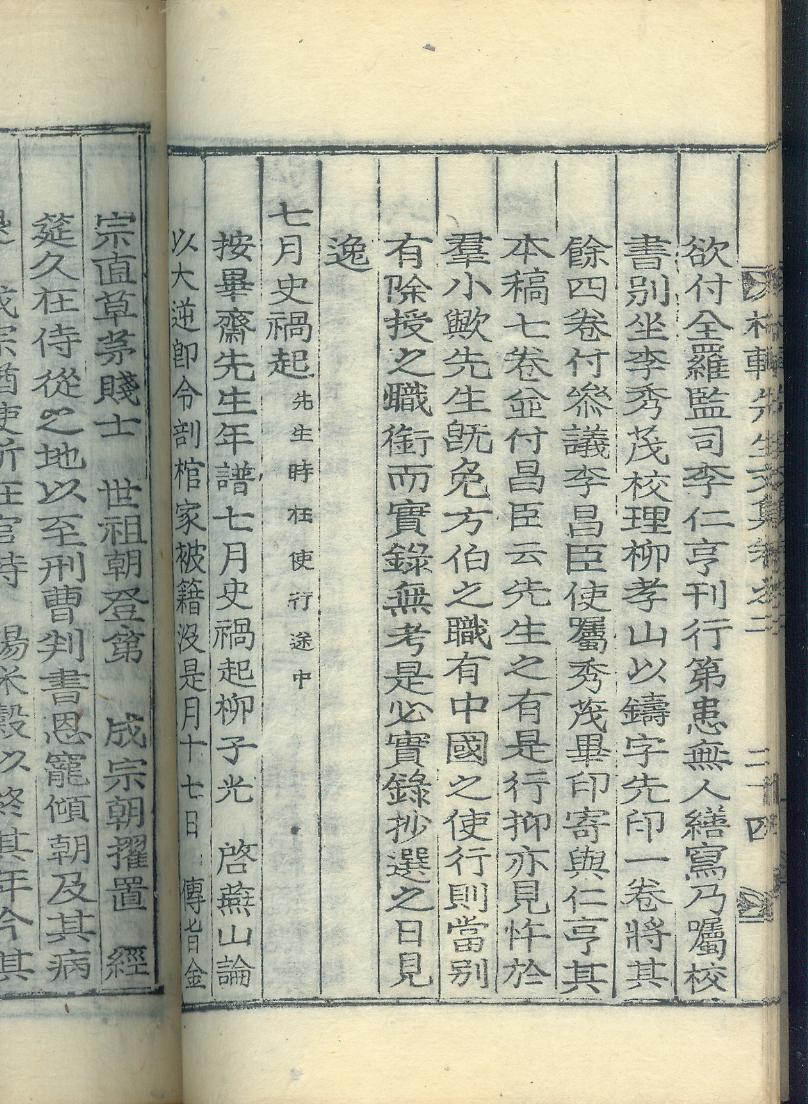 梅軒先生文集卷之二 二十四
欲付全羅監司李仁亨刊行第患無人繕寫乃囑校
書別坐李秀茂校理柳孝山以鑄字先印一卷將其
餘四卷付參議李昌臣使囑秀茂畢印寄與仁亨其
本稿七卷並付昌臣云先生之有是行抑亦見忤於
羣小歟先生旣免方伯之職有中國之使行則當別
有除授之職銜而實錄無考是必實錄抄選之日見
逸
七月史禍起 先生時在使行途中
按畢齋先生年譜七月史禍起柳子光 啓蕪山論
以大逆卽令剖棺家被籍沒是月十七日 傳旨金
宗直草茅賤士 世祖朝登第 成宗朝擢置 經
筵久在侍從之地以至刑曹判書恩寵傾朝及其病
退 成宗猶使所在官特 賜米穀以終其年今其